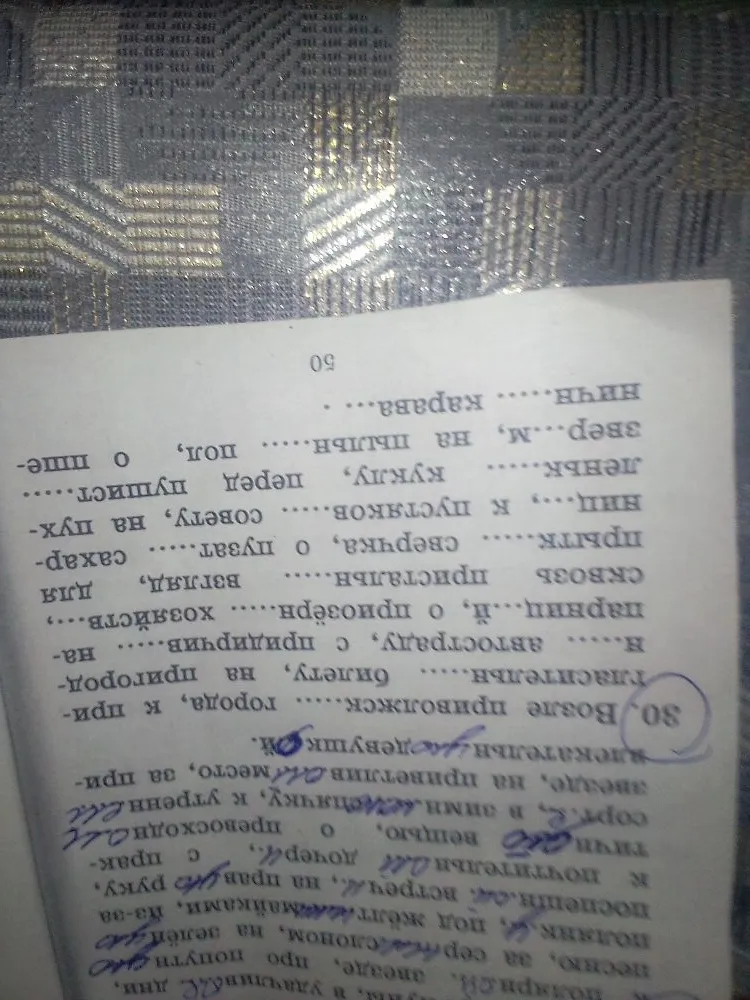 полярн ей. звезде, про попутн ую
песню, за сер ым слоном, на зелён ую
полянк у, под жёлт ыми майками, из-за
поспешн ой. встреч и, на прав ую руку,
к почтительн ой дочер и., с прак-
тичн ой вещью, о превосходн ом
сорт. е, в зимн юю спячку, к утренн ей
звезде, на приветлив ое место, за при-
влекательн ую девушк ой.
80. Возле приволжск..... города, к при-
гласительн..... билету, на пригород-
н..... автостраду, с придирчив..... на-
парниц...й, о приозёрн..... хозяйств...,
сквозь пристальн..... взгляд, для
прытк..... сверчка, о пузат..... сахар-
ниц..., к пустяков..... совету, на пух-
леньк..... куклу, перед пушист.....
звер...м, на пыльн..... пол, о пше-
ничн..... карава... .
50